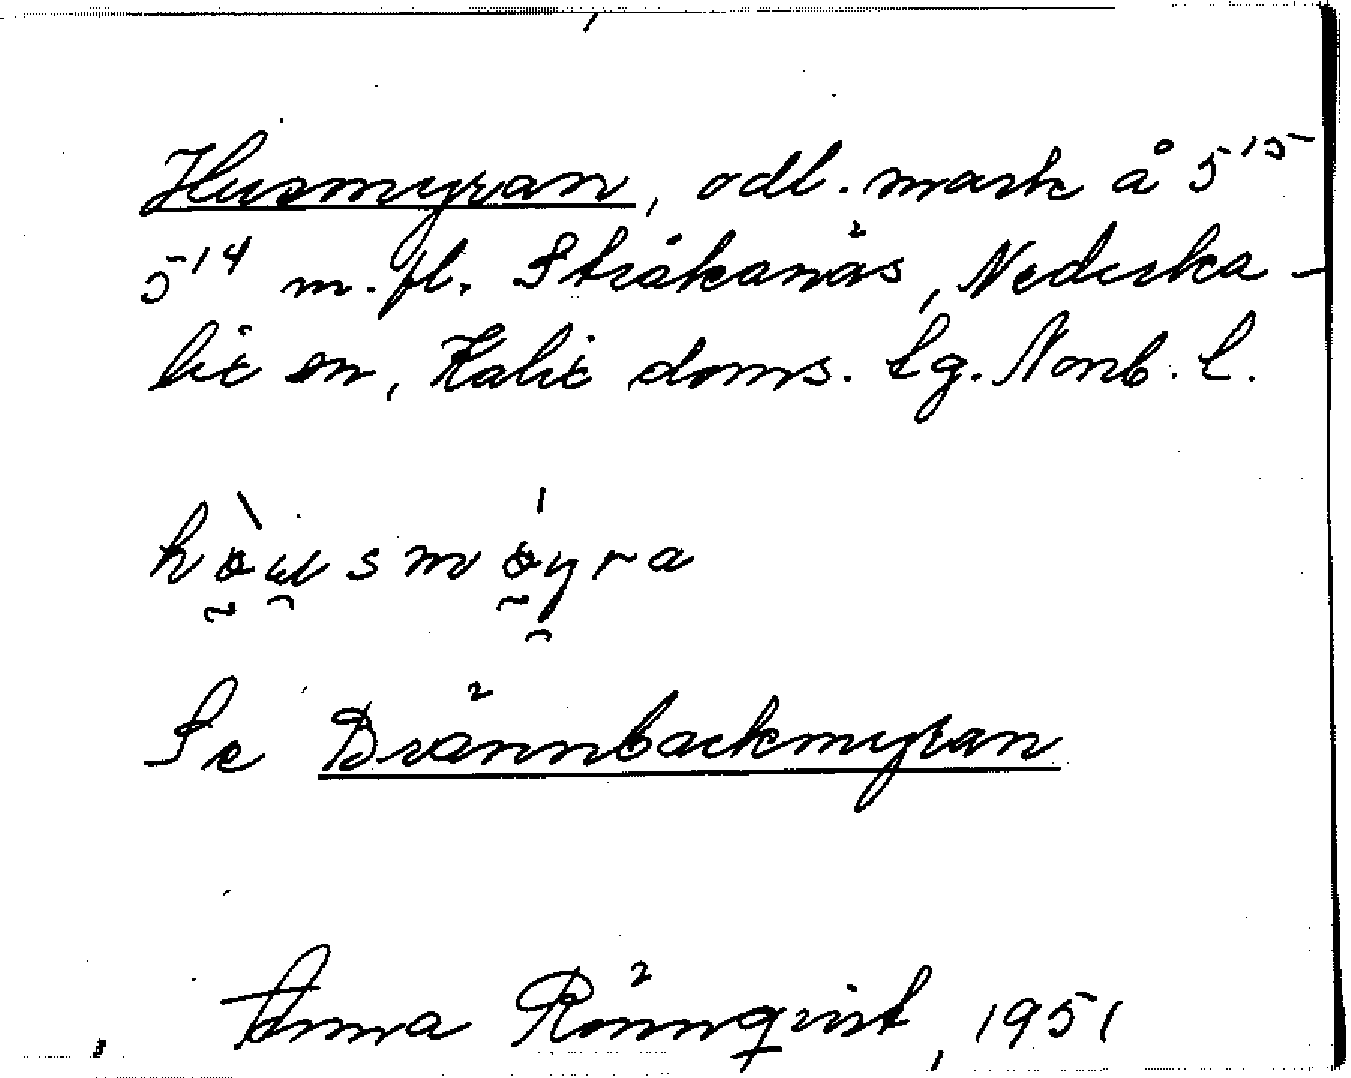 Husmyran, odl. mark å 5¹⁵
5¹⁴ m. fl. Stråkanäs, Nederka-
lix sn, Kalix doms. lg. Norrb. l.
Se Brännbackmyran
Anna Rönnqvist, 1951